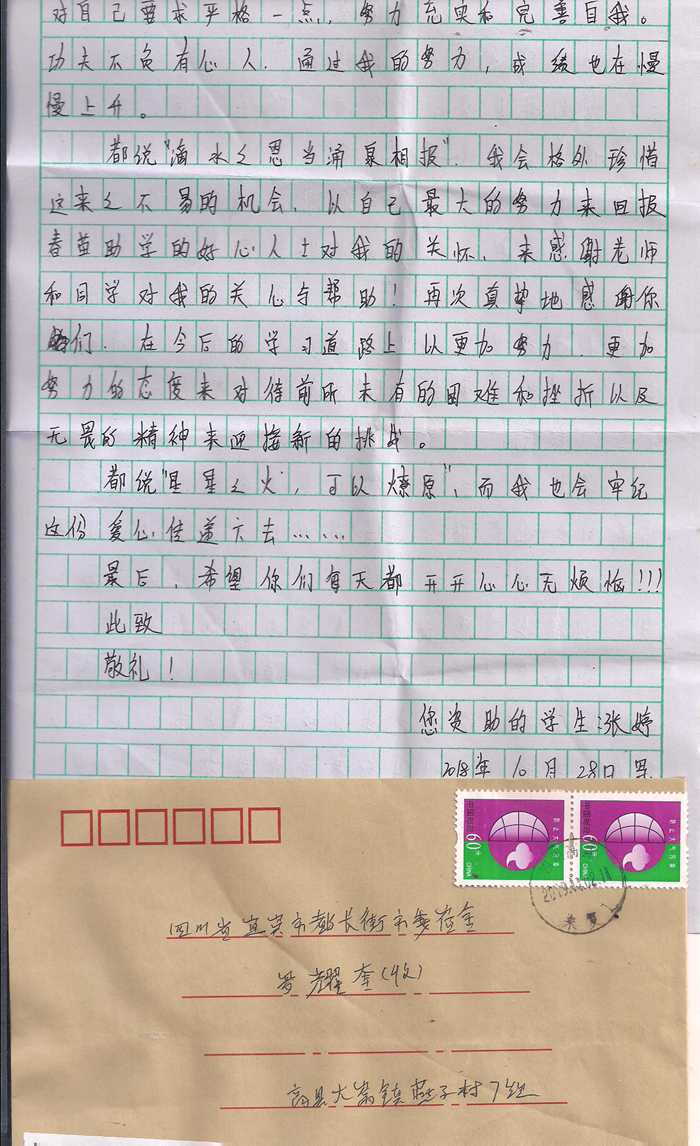 对自己要求严格一点，努力充实和完善自我。
功夫不负有心人，通过我的努力，成绩也在慢
慢上升。
都说"滴水之恩当涌泉相报"，我会格外珍惜
这来之不易的机会，以自己最大的努力来回报
春苗助学的好心人士对我的关怀，来感谢老师
和同学对我的关心与帮助！再次真挚地感谢你
们，在今后的学习道路上以更加努力，更加
努力的态度来对待前所未有的困难和挫折以及
无畏的精神来迎接新的挑战。
都说"星星之火，可以燎原"，而我也会牢记
这份爱心传递下去……
最后，希望你们每天都开开心心无烦恼!!!
此致
敬礼！
您资助的学生：张婷
2018年10月28日写
中国邮政
60分
CHINA
防止大气污染
中国邮政
60分
CHINA
防止大气污染
四川省宜宾市都长街市委宿舍
罗耀奎(收)
高县大窝镇燕子村7组